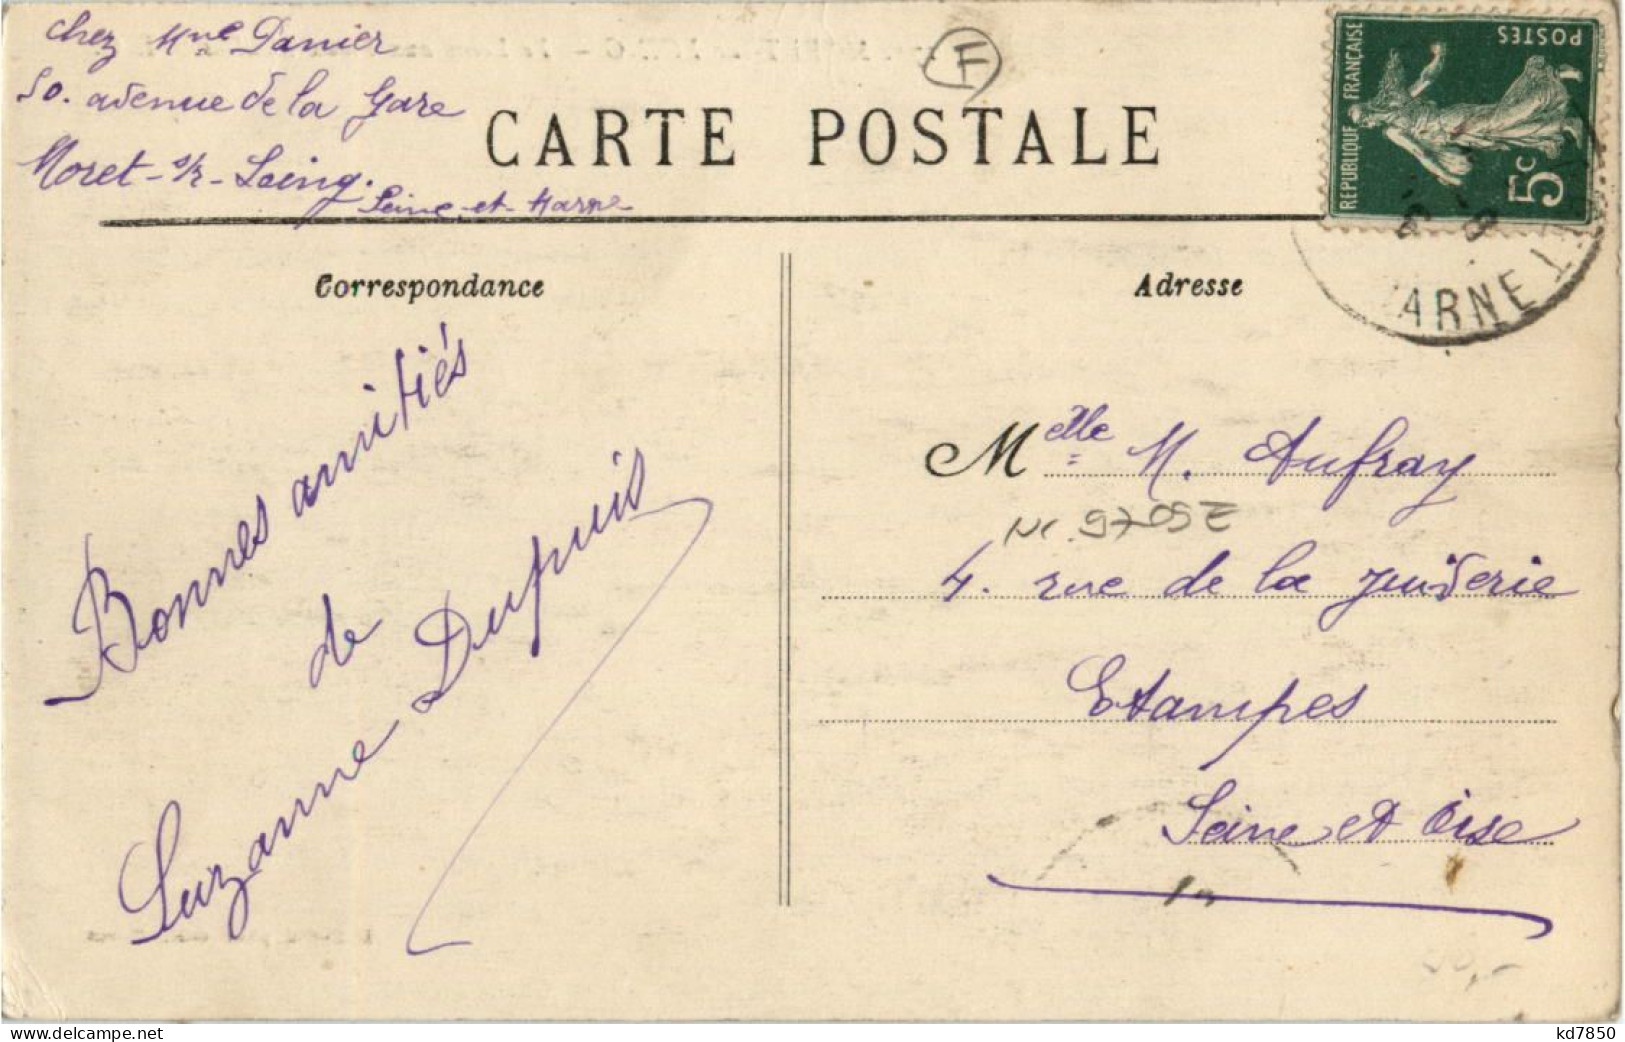 chez Mme Danier
50. avenue de la Gare
Moret-s/r-Loing.
Seine-et-Marne
F
CARTE POSTALE
POSTES
REPUBLIQUE FRANÇAISE
5c
ARNE
Correspondance
Bonnes amitiés
de
Suzanne Dupuis
Adresse
Melle M. Aufray
4. rue de la Juiverie
Etampes
Seine et Oise
www.delcampe.net
kd7850